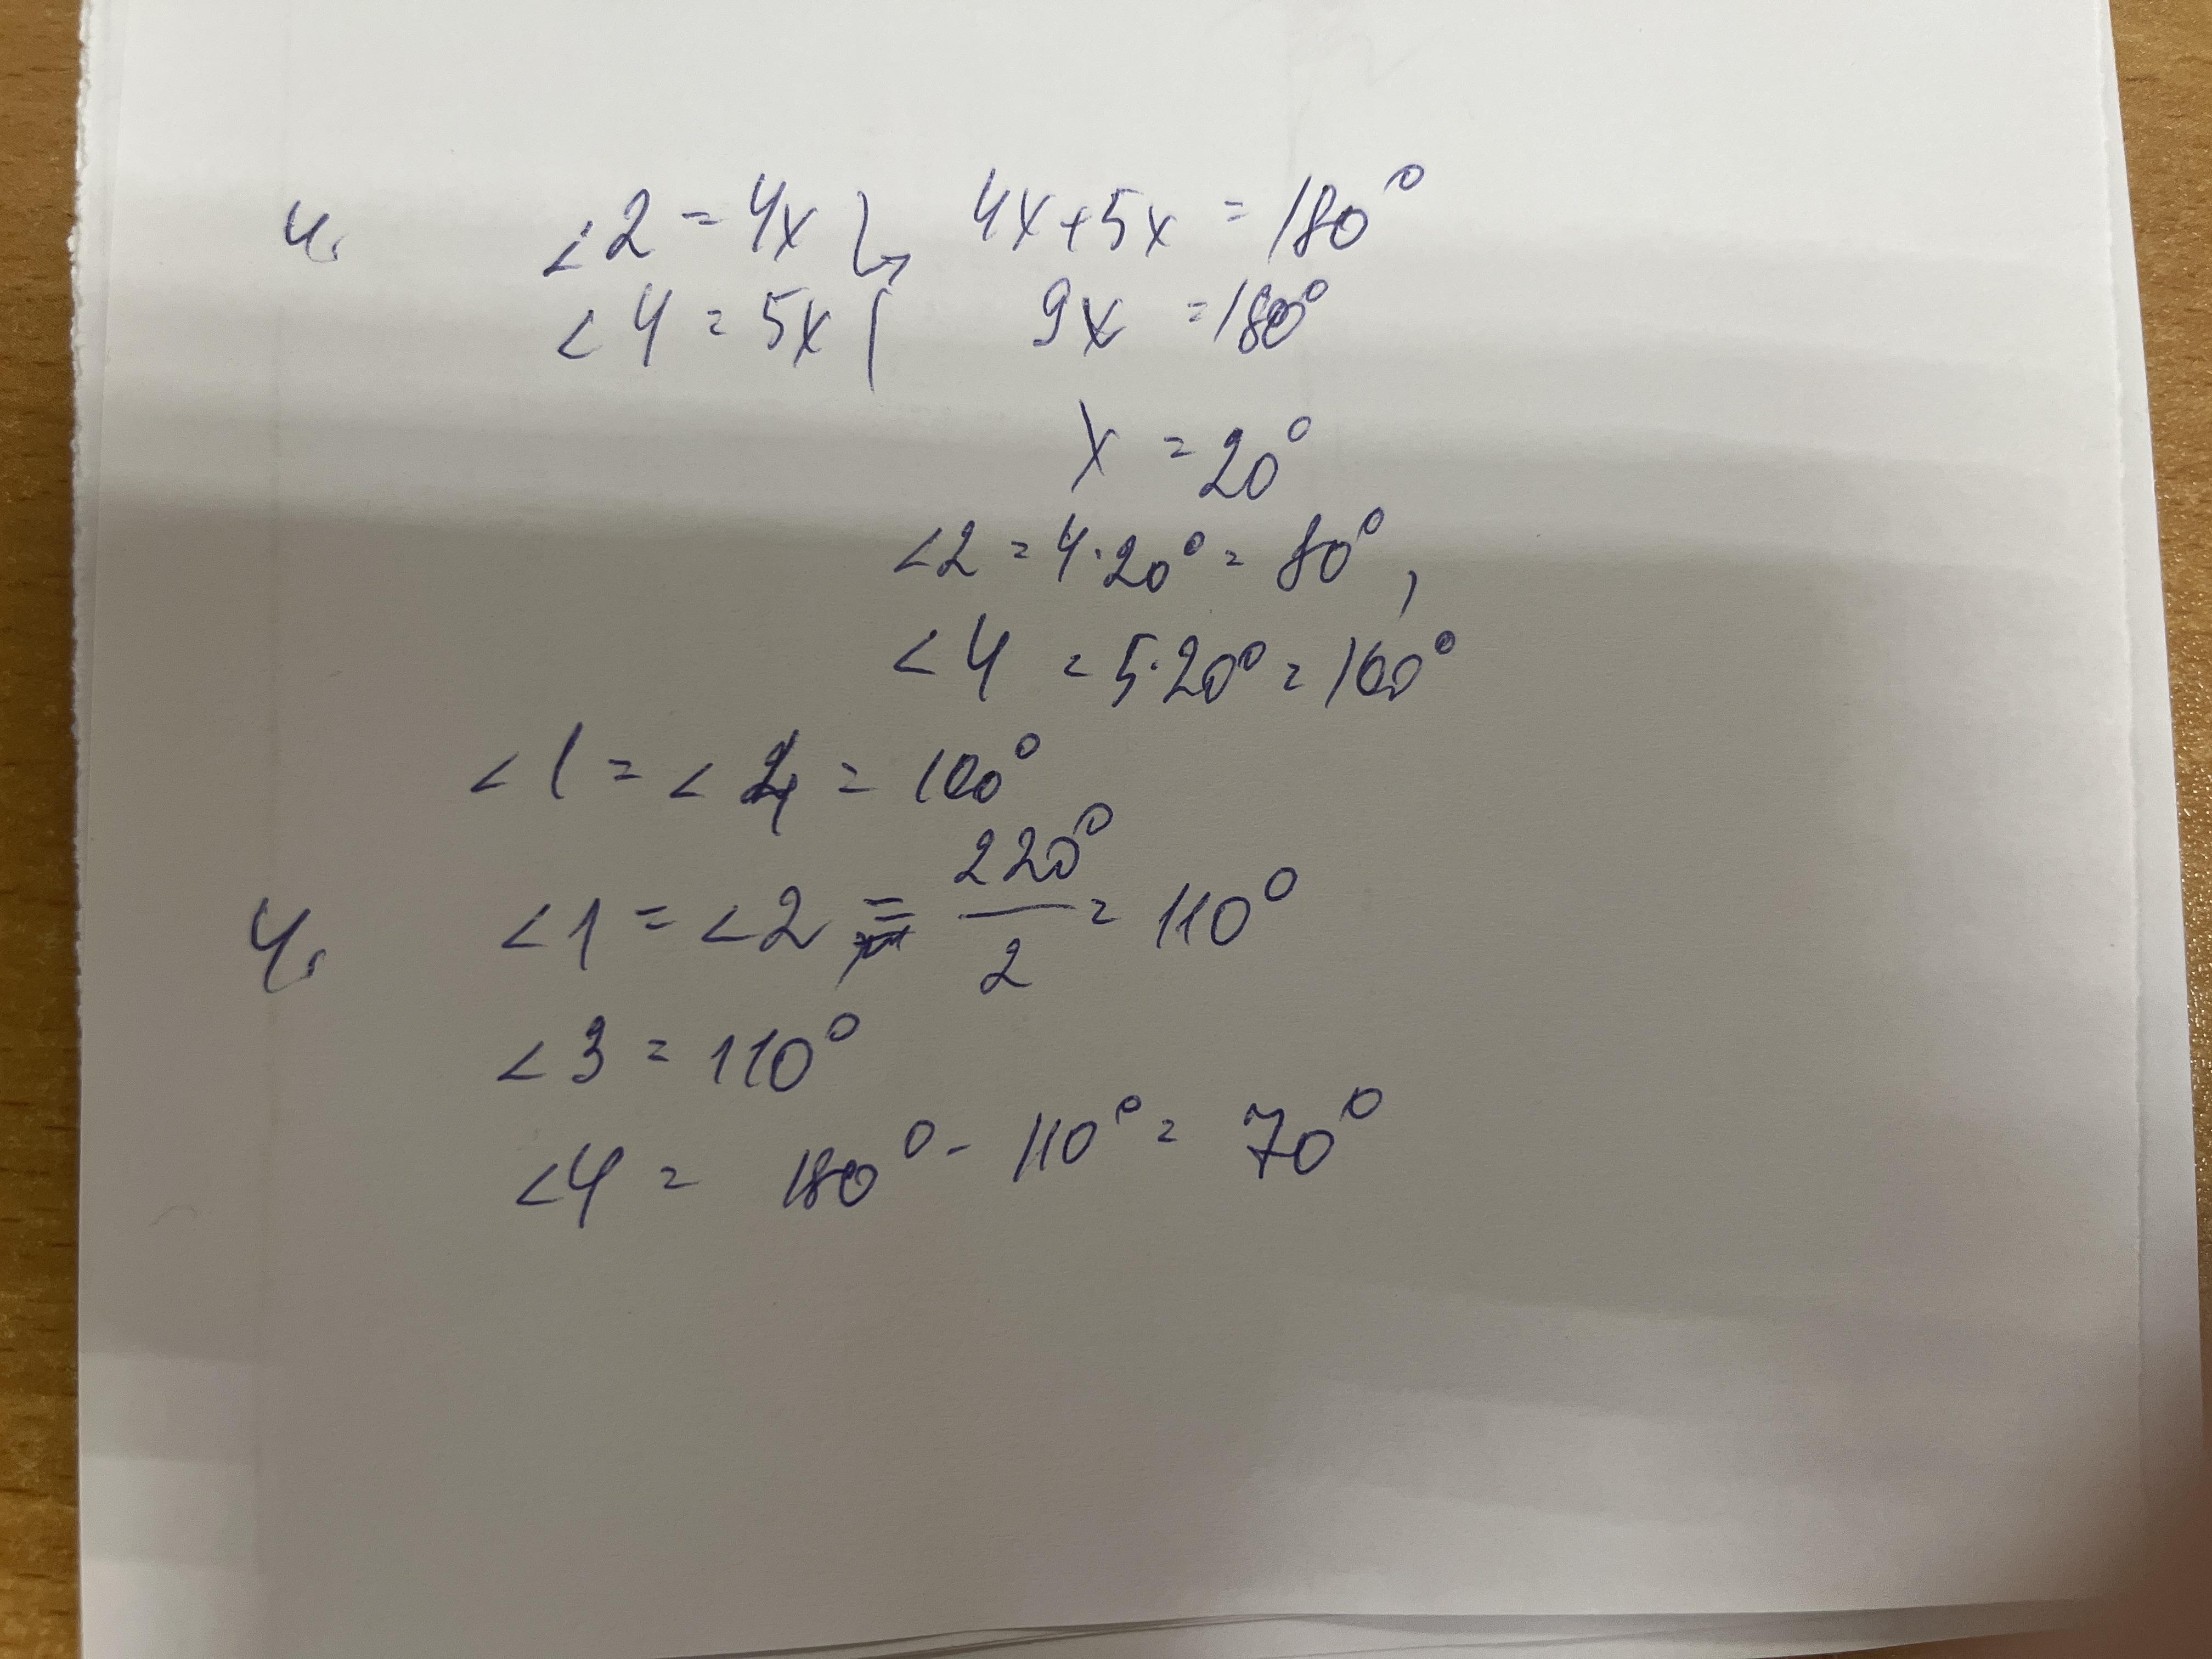 4. ∠2 = 4x } 4x+5x = 180°
∠4 = 5x 9x = 180°
x = 20°
∠2 = 4·20° = 80°,
∠4 = 5·20° = 100°
∠1 = ∠4 = 100°
4. ∠1 = ∠2 = 220°/2 = 110°
∠3 = 110°
∠4 = 180° - 110° = 70°